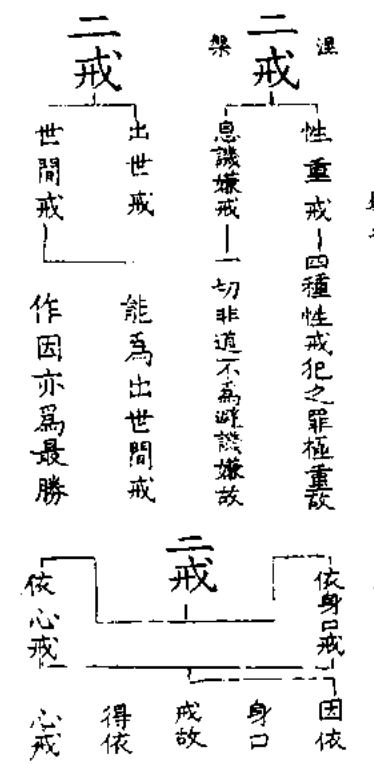 涅槃
二戒
性重戒
四種性戒犯之罪極重故
息譏嫌戒
一切非道不為避譏嫌故
二戒
出世戒
世間戒
能為出世間戒
作因亦爲最勝
二戒
依身口戒
依心戒
因依
身口
戒故
得依
心戒